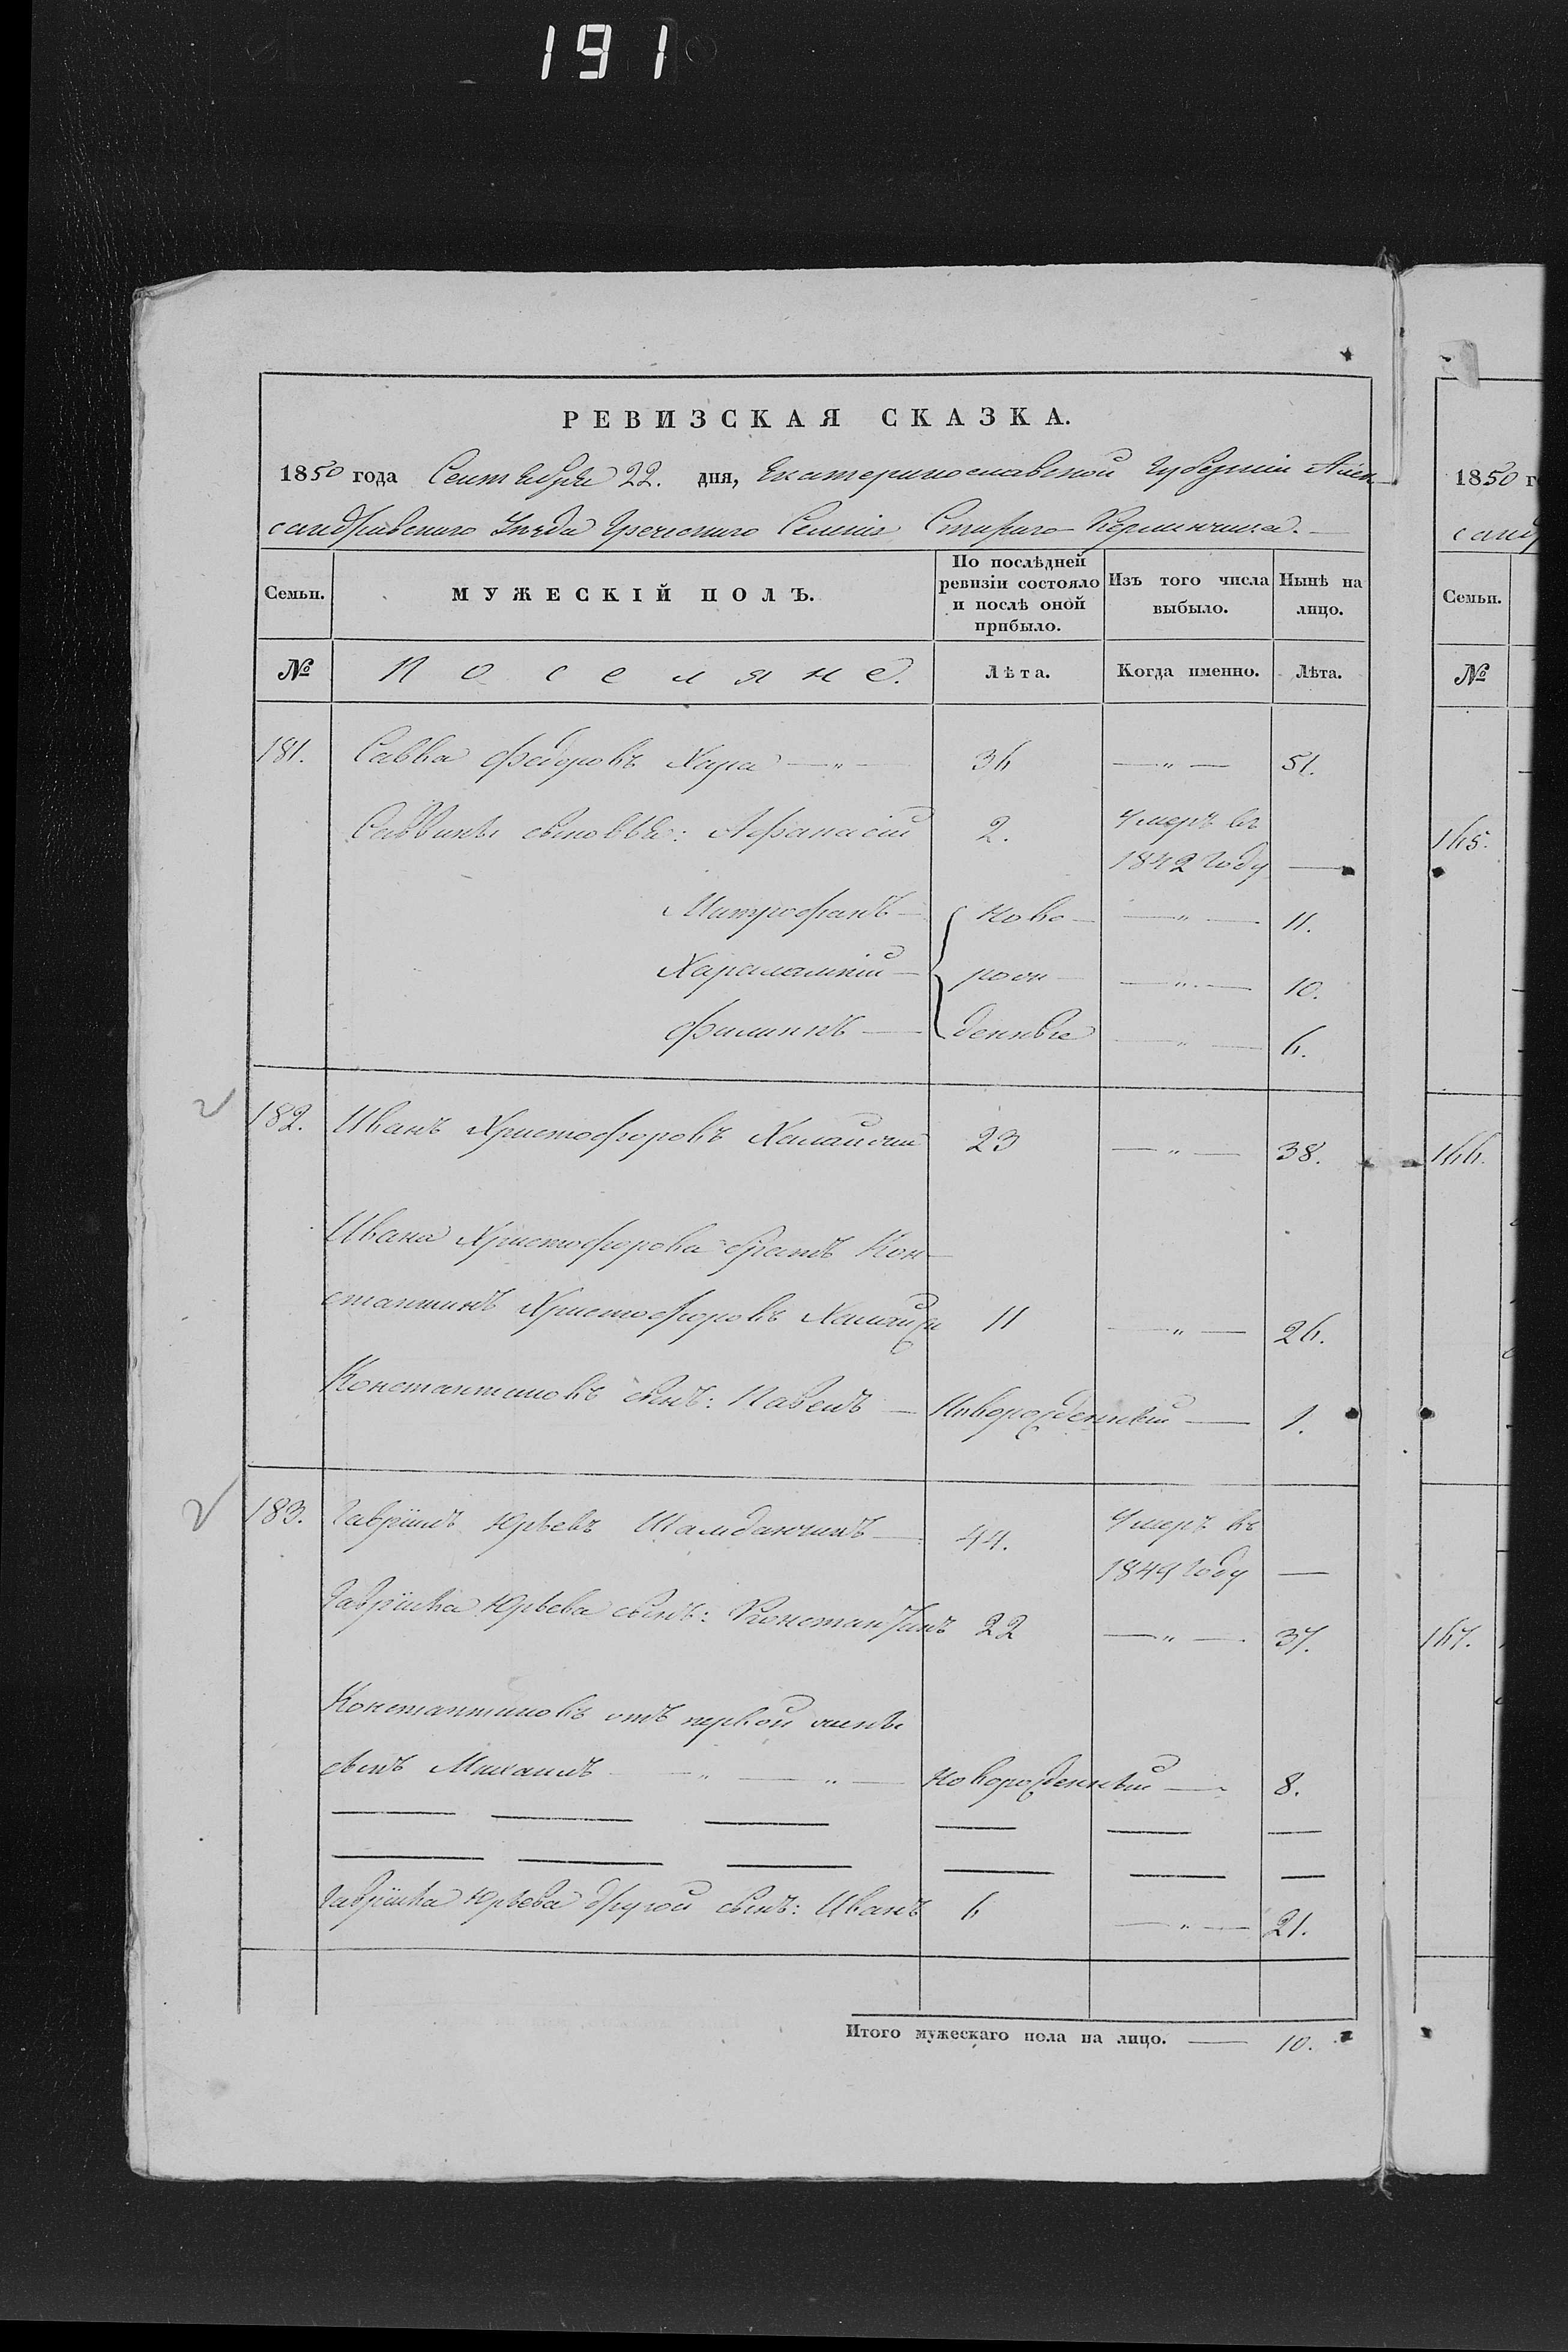 191
РЕВИЗСКАЯ СКАЗКА.
1850 года Сентября 22. дня, Екатеринославской Губерніи Алек-
сандровскаго Уезда Греческаго Селенія Стараго Керменчика.
Семьи. МУЖЕСКІЙ ПОЛЪ. По послѣдней ревизіи состояло и послѣ оной прибыло. Изъ того числа выбыло. Нынѣ на лицо.
№ Поселяне. Лѣта. Когда именно. Лѣта.
181. Савва Федоровъ Хара —〃— 36 —〃— 51.
Саввины сыновья: Афанасій 2. Умеръ въ
1842 году —
Митрофанъ — Ново- —〃— 11.
Харлампій — рож- —〃— 10.
Филиппъ — денные —〃— 6.
182. Иванъ Христофоровъ 23 —〃— 38.
Ивана Христофорова братъ Кон-
стантинъ Христофоровъ 11 —〃— 26.
Константиновъ сынъ: Павелъ — Новорожденный — 1.
183. Гавріилъ Юрьевъ Шамданчинъ — 44. Умеръ въ
1849 году —
Гавріила Юрьева сынъ: Константинъ 22 —〃— 37.
Константиновъ отъ первой жены
сынъ Михаилъ —〃—〃— Новорожденный — 8.
Гавріила Юрьева другой сынъ: Иванъ 6 —〃— 21.
Итого мужескаго пола на лицо. — 10.
1850 г
санд
Семьи.
№
165.
166.
167.